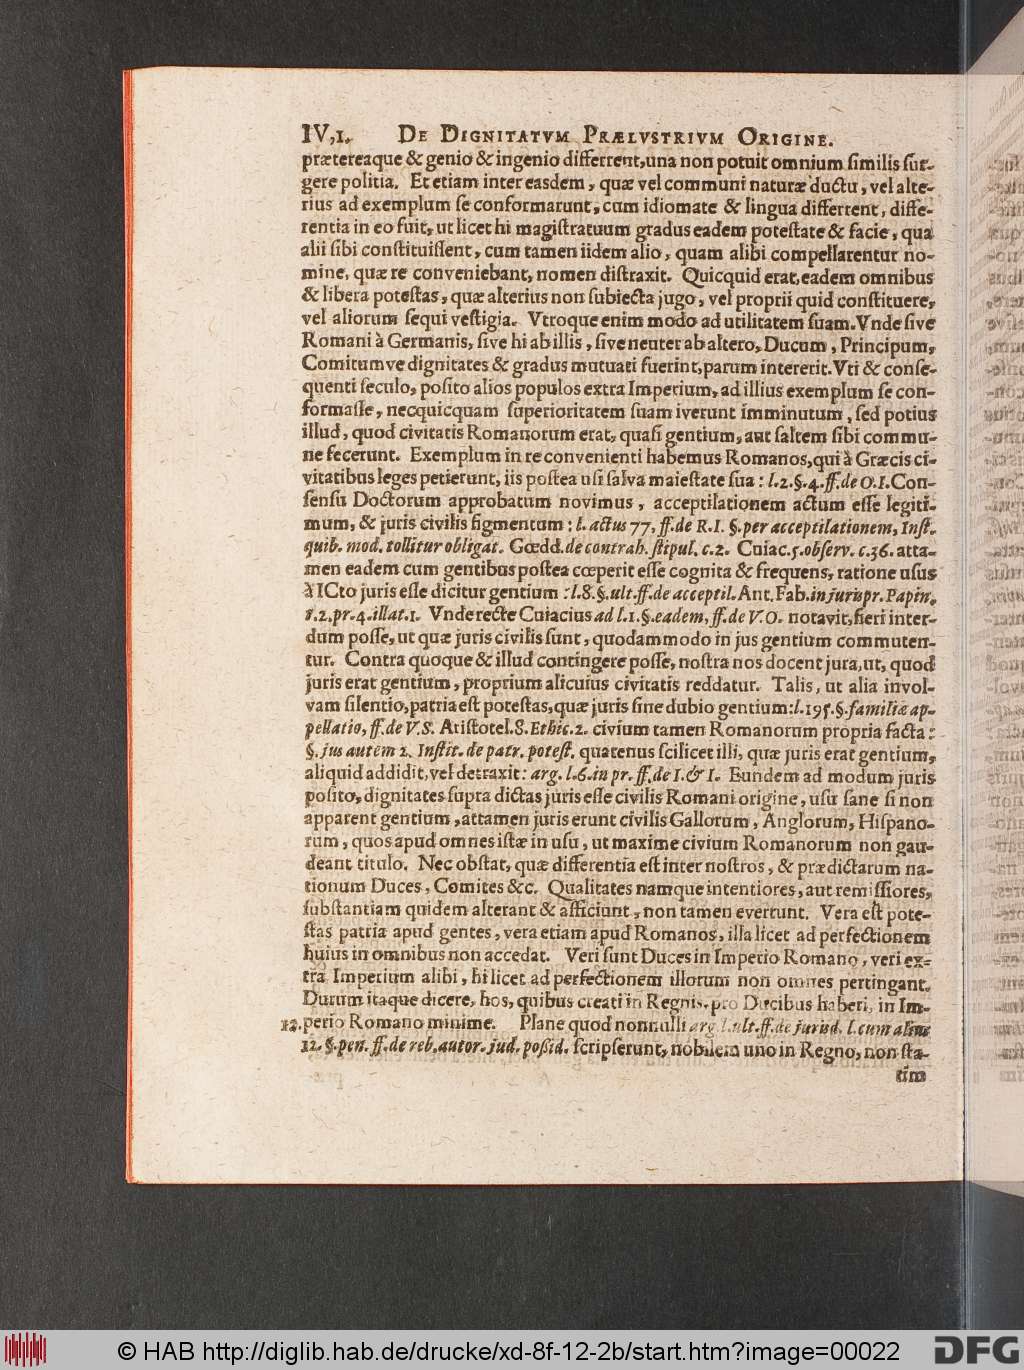 IV,1. DE DIGNITATVM PRÆLVSTRIVM ORIGINE.
prætereaque & genio & ingenio differrent, una non potuit omnium similis sur-
gere politia. Et etiam inter easdem, quæ vel communi naturæ ductu, vel alte-
rius ad exemplum se conformarunt, cum idiomate & lingua differrent, diffe-
rentia in eo fuit, ut licet hi magistratuum gradus eadem potestate & facie, qua
alii sibi constituissent, cum tamen iidem alio, quam alibi compellarentur no-
mine, quæ re conveniebant, nomen distraxit. Quicquid erat, eadem omnibus
& libera potestas, quæ alterius non subiecta jugo, vel proprii quid constituere,
vel aliorum sequi vestigia. Vtroque enim modo ad utilitatem suam. Vnde sive
Romani à Germanis, sive hi ab illis, sive neuter ab altero, Ducum, Principum,
Comitumve dignitates & gradus mutuati fuerint, parum intererit. Vti & conse-
quenti seculo, posito alios populos extra Imperium, ad illius exemplum se con-
formasse, necquicquam superioritatem suam iverunt imminutum, sed potius
illud, quod civitatis Romanorum erat, quasi gentium, aut saltem sibi commu-
ne fecerunt. Exemplum in re convenienti habemus Romanos, qui à Græcis ci-
vitatibus leges petierunt, iis postea usi salva maiestate sua: l.2.§.4.ff.de O.I. Con-
sensu Doctorum approbatum novimus, acceptilationem actum esse legiti-
mum, & juris civilis figmentum: l. actus 77, ff.de R.I. §.per acceptilationem, Inst.
quib. mod. tollitur obligat. Gœdd. de contrah. stipul. c.2. Cuiac. 5. observ. c.36. atta-
men eadem cum gentibus postea cœperit esse cognita & frequens, ratione usus
à ICto juris esse dicitur gentium: l.8.§.ult.ff.de acceptil. Ant. Fab. in jurispr. Papin.
1.2.pr.4.illat.1. Vnde recte Cuiacius ad l.1.§.eadem, ff.de V.O. notavit, fieri inter-
dum posse, ut quæ juris civilis sunt, quodammodo in jus gentium commuten-
tur. Contra quoque & illud contingere posse, nostra nos docent jura, ut, quod
juris erat gentium, proprium alicuius civitatis reddatur. Talis, ut alia invol-
vam silentio, patria est potestas, quæ juris sine dubio gentium: l.195.§.familiæ ap-
pellatio, ff.de V.S. Aristotel. 8. Ethic. 2. civium tamen Romanorum propria facta:
§. jus autem 2. Instit. de patr. potest. quatenus scilicet illi, quæ juris erat gentium,
aliquid addidit, vel detraxit: arg. l.6.in pr. ff.de I.& I. Eundem ad modum juris
posito, dignitates supra dictas juris esse civilis Romani origine, usu sane si non
apparent gentium, attamen juris erunt civilis Gallorum, Anglorum, Hispano-
rum, quos apud omnes istæ in usu, ut maxime civium Romanorum non gau-
deant titulo. Nec obstat, quæ differentia est inter nostros, & prædictarum na-
tionum Duces, Comites &c. Qualitates namque intentiores, aut remissiores,
substantiam quidem alterant & afficiunt, non tamen evertunt. Vera est pote-
stas patria apud gentes, vera etiam apud Romanos, illa licet ad perfectionem
huius in omnibus non accedat. Veri sunt Duces in Imperio Romano, veri ex-
tra Imperium alibi, hi licet ad perfectionem illorum non omnes pertingant.
Durum itaque dicere, hos, quibus creati in Regnis, pro Ducibus haberi, in Im-
12. perio Romano minime. Plane quod nonnulli arg. l.ult.ff.de jurisd. l. cum alius
12. §. pen. ff.de reb. autor. jud. possid. scripserunt, nobilem uno in Regno, non sta-
tim
© HAB http://diglib.hab.de/drucke/xd-8f-12-2b/start.htm?image=00022
DFG